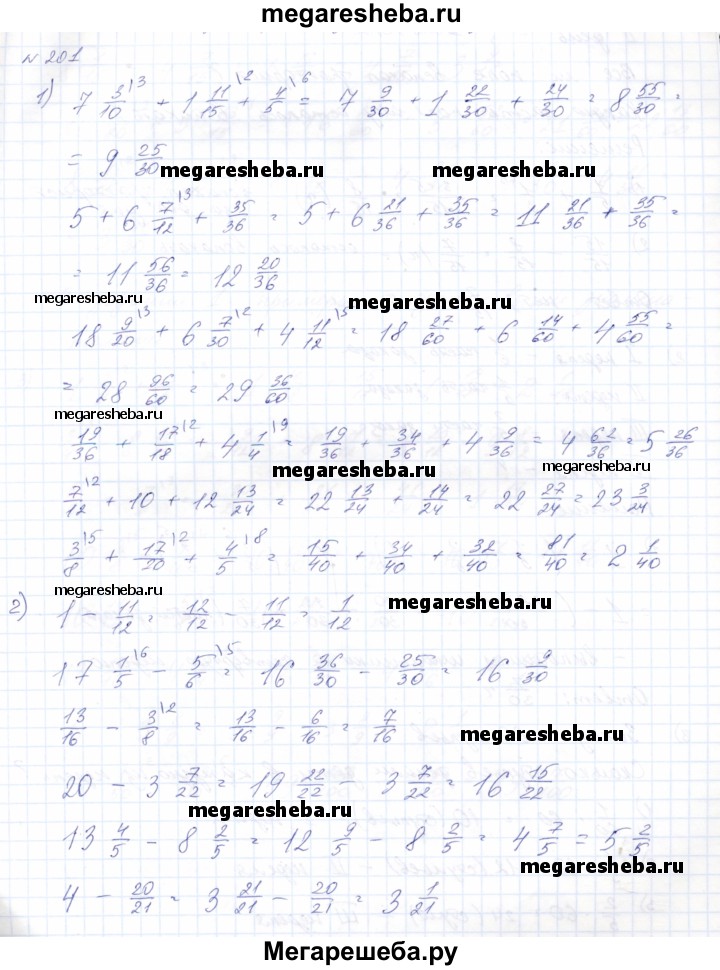 megaresheba.ru
№ 201
1) 7 3/10 \3 + 1 11/15 \2 + 4/5 \6 = 7 9/30 + 1 22/30 + 24/30 = 8 55/30 =
= 9 25/30
megaresheba.ru megaresheba.ru
5 + 6 7/12 \3 + 35/36 = 5 + 6 21/36 + 35/36 = 11 21/36 + 35/36 =
= 11 56/36 = 12 20/36
megaresheba.ru megaresheba.ru
18 9/20 \3 + 6 7/30 \2 + 4 11/12 \5 = 18 27/60 + 6 14/60 + 4 55/60 =
= 28 96/60 = 29 36/60
megaresheba.ru
19/36 + 17/18 \2 + 4 1/4 \9 = 19/36 + 34/36 + 4 9/36 = 4 62/36 = 5 26/36
megaresheba.ru megaresheba.ru
7/12 \2 + 10 + 12 13/24 = 22 13/24 + 14/24 = 22 27/24 = 23 3/24
3/8 \5 + 17/20 \2 + 4/5 \8 = 15/40 + 34/40 + 32/40 = 81/40 = 2 1/40
megaresheba.ru megaresheba.ru
2) 1 - 11/12 = 12/12 - 11/12 = 1/12
17 1/5 \6 - 5/6 \5 = 16 36/30 - 25/30 = 16 9/30
13/16 - 3/8 \2 = 13/16 - 6/16 = 7/16
megaresheba.ru
20 - 3 7/22 = 19 22/22 - 3 7/22 = 16 15/22
megaresheba.ru
13 4/5 - 8 2/5 = 12 9/5 - 8 2/5 = 4 7/5 = 5 2/5
megaresheba.ru
4 - 20/21 = 3 21/21 - 20/21 = 3 1/21
megaresheba.ru
Мегарешеба.ру